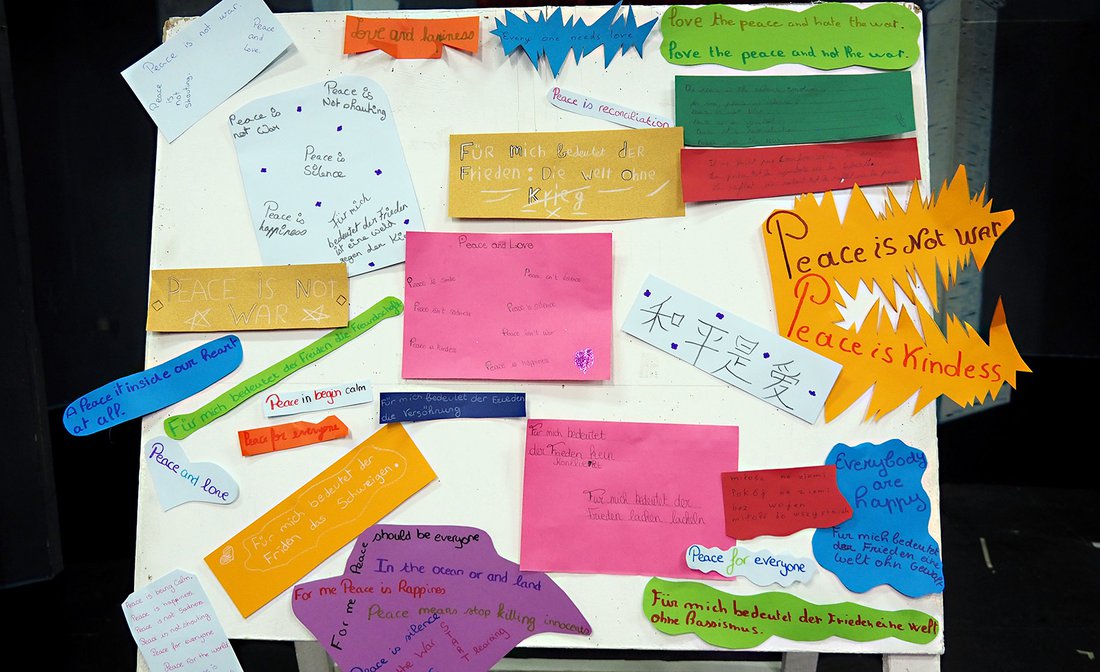 Peace is not war.
Peace
is
not
shouting
Peace
and
Love.
Love and happiness
Every one needs love
Love the peace and hate the war.
Love the peace and not the war.
Peace is reconciliation
Peace is
Not shouting
Peace is
not War
Peace is
Silence
Peace is
happiness
Für mich
bedeutet der Frieden
ist eine welt
gegen den
FÜR Mich bedeutet DER
Frieden: Die Welt Ohne
Krieg
PEACE IS NOT
WAR
Peace and Love
Peace is smile
Peace isn't
Peace isn't sadness
Peace is silence
Peace isn't war
Peace is kindness
Peace is happiness
和平是爱
Peace is Not War
Peace is Kindess
A Peace it inside our heart
at all.
Für mich bedeutet der Frieden die Freundschaft
Peace in begin calm
Für mich bedeutet der Frieden
die Versöhnung
Peace for everyone
Peace and love
Für mich bedeutet der
Friden das Schweigen.
Für mich bedeutet
der Frieden kein
Für mich bedeutet der
Frieden lachen lächeln
miłość na ziemi
Pokój na ziemi
bez wojen
miłość do wszystkich
Everybody
are
happy
Für mich bedeutet
der Frieden eine
welt ohn Gewalt
Peace for everyone
Für mich bedeutet der Frieden eine welt
ohne Rassismus.
For me Peace should be everyone
In the ocean or and land
For me Peace is Rappiness
Peace means stop killing innocents
Peace is silence
the War
START learning
Peace is being calm,
Peace is happiness
Peace is not Sadness
Peace is not shouting
Peace for everyone
Peace for the world